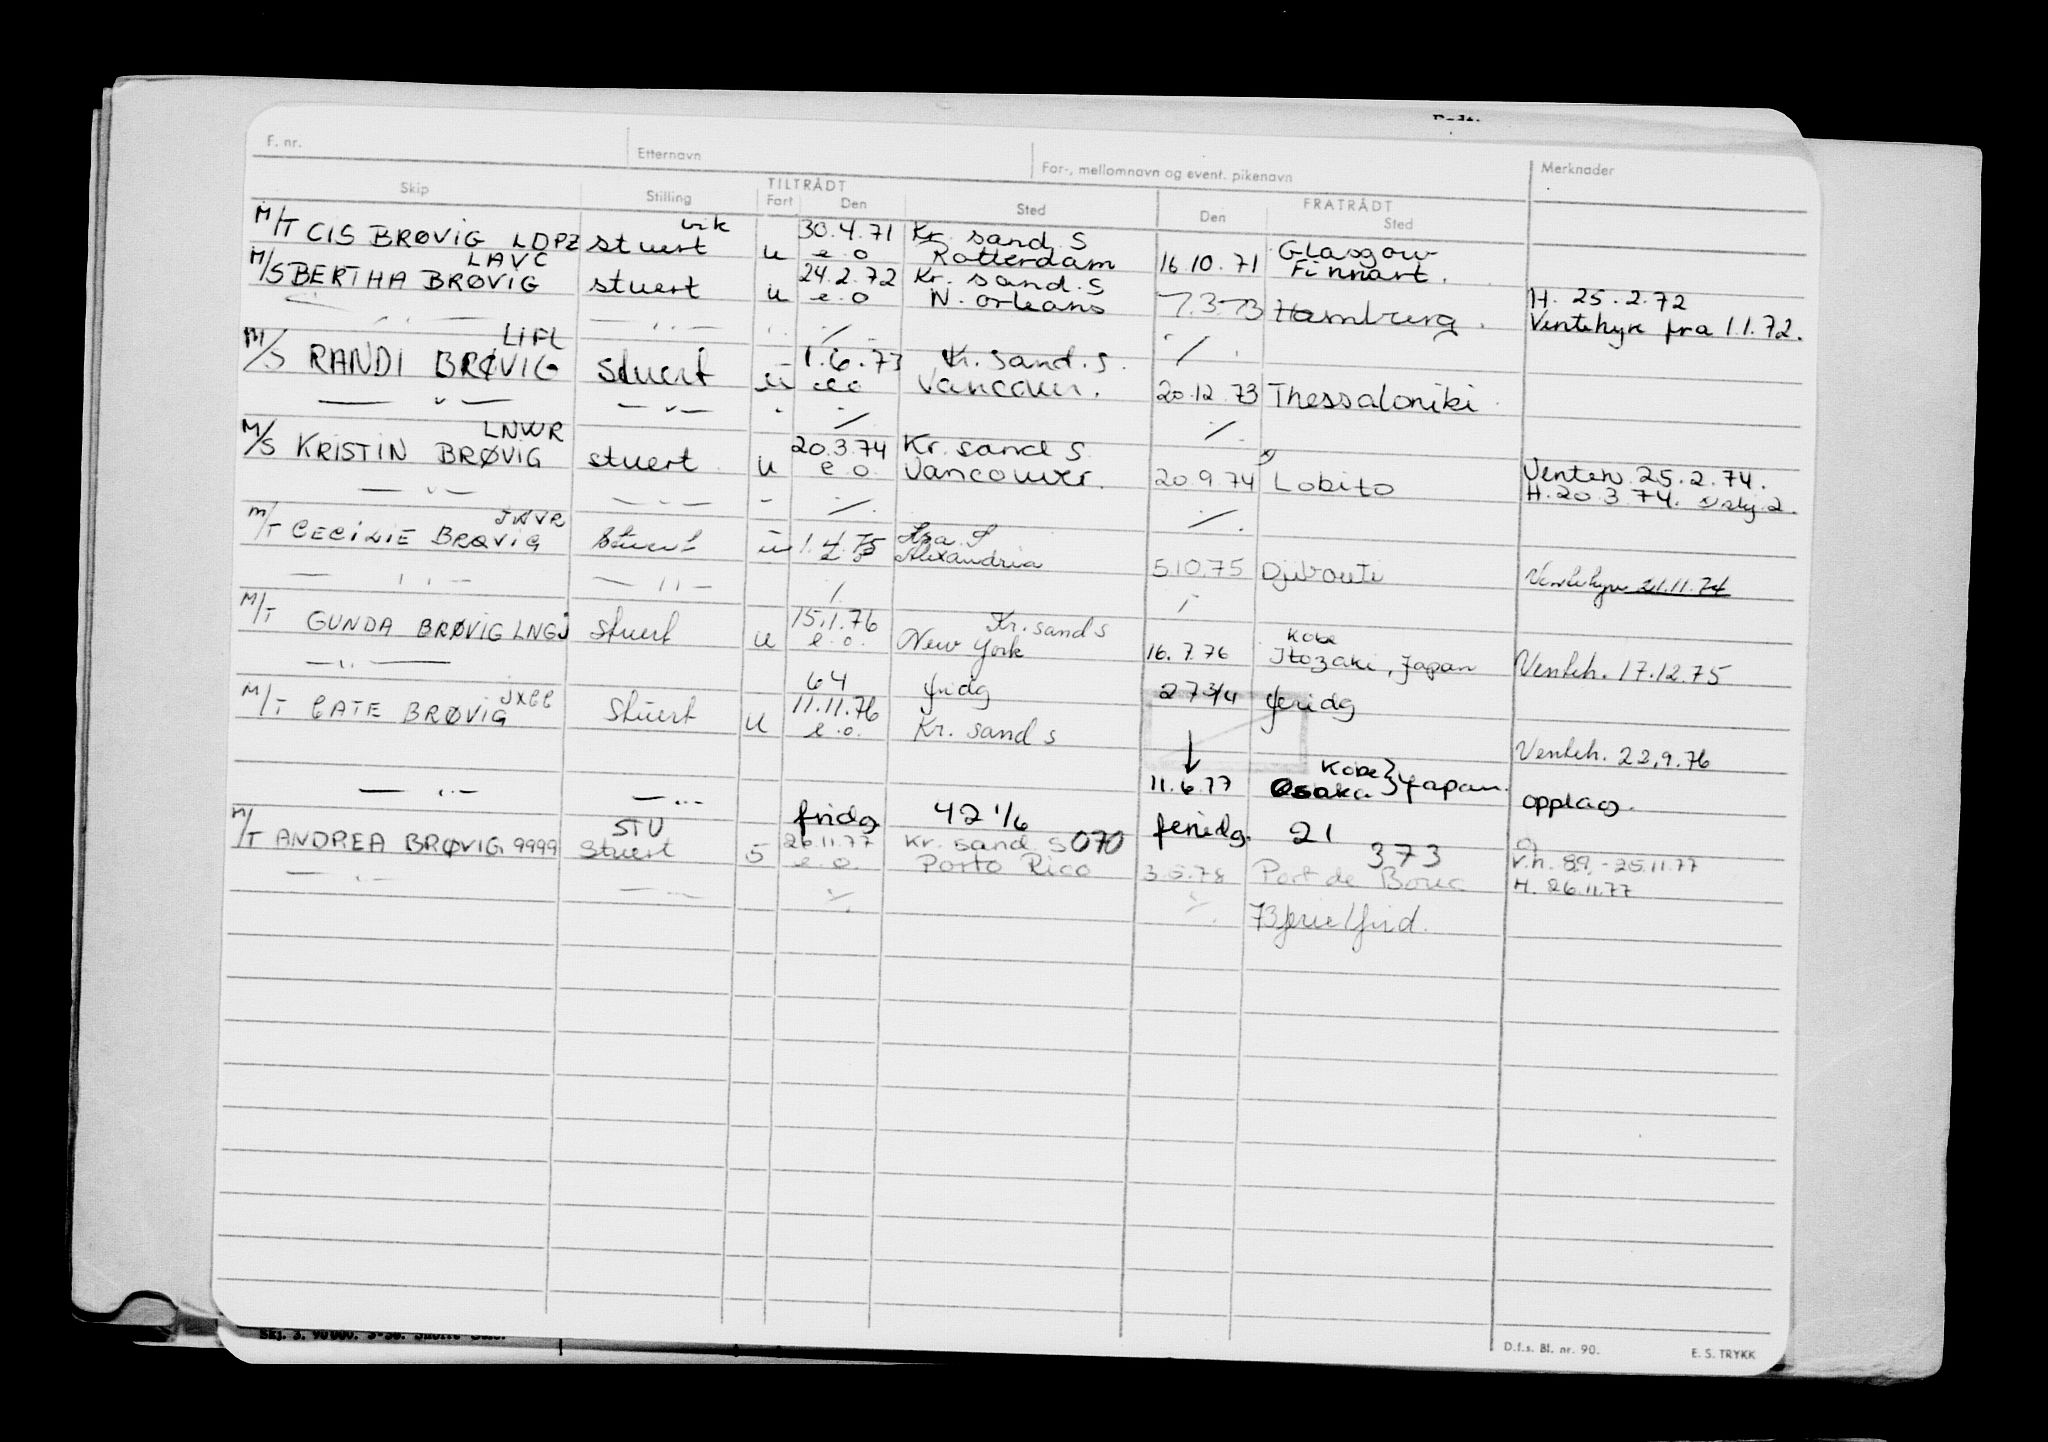 F. nr. Etternavn For-, mellomnavn og event. pikenavn Merknader
Skip Stilling TILTRÅDT FRATRÅDT
Fart Den Sted Den Sted
M/T CIS BRØVIG LDPZ stuert vik u 30.4.71 Kr. sand. S 16.10.71 Glasgow
e.o Rotterdam Finnart.
M/S BERTHA BRØVIG LAVC stuert u 24.2.72 Kr. sand. S H. 25.2.72
e.o N. orleans 7.3.73 Hamburg. Ventehyre fra 1.1.72.
— " — — " — " ./. ./.
M/S RANDI BRØVIG LIFL stuert u 1.6.73 Kr. sand. S.
e.o Vancouver. 20.12.73 Thessaloniki
— " — — " — " ./. ./.
M/S KRISTIN BRØVIG LNWR stuert u 20.3.74 Kr. sand S Venteh. 25.2.74.
e.o. Vancouver. 20.9.74 Lobito H. 20.3.74.
— " — — " — - ./. ./.
M/T CECILIE BRØVIG JWVR Stuert u 1.4.75 Kra. S
Alexandria 5.10.75 Djibouti Ventehyre 21.11.74
— " — — " — / /
M/T GUNDA BRØVIG LNGJ Stuert u 15.1.76 Kr. sand s Kobe
e.o. New York 16.7.76 Itozaki, Japan Venteh. 17.12.75
— " — 64 fridg 27 3/4 feridg
M/T CATE BRØVIG Stuert u 11.11.76
e.o. Kr. sand s Venteh. 22.9.76
Kobe } Japan.
— " — — " — 11.6.77 Osaka opplag.
fridg 42 1/6 feridg. 21
M/T ANDREA BRØVIG 9999 STU Stuert 5 26.11.77 Kr. sand S 070 373 v.h. 8.9.-25.11.77
e.o. Porto Rico 3.5.78 Port de Bouc H. 26.11.77
— " — — " — ./. ./. 73 ferie/frid.
Skj. 3.
D.f.s. Bl. nr. 90. E. S. TRYKK